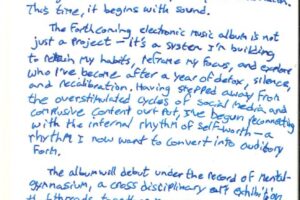 This time, it begins with sound.
The forthcoming electronic music album is not
just a project — it's a system I'm building
to retrain my habits, reframe my focus, and explore
who I've become after a year of detox, silence,
and recalibration. Having stepped away from
the overstimulated cycles of social media and
compulsive content output, I've begun reconnecting
with the internal rhythm of self-worth — a
rhythm I now want to convert into auditory
form.
The album will debut under the record of Mental-
gymnasium, a cross disciplinary art exhibition